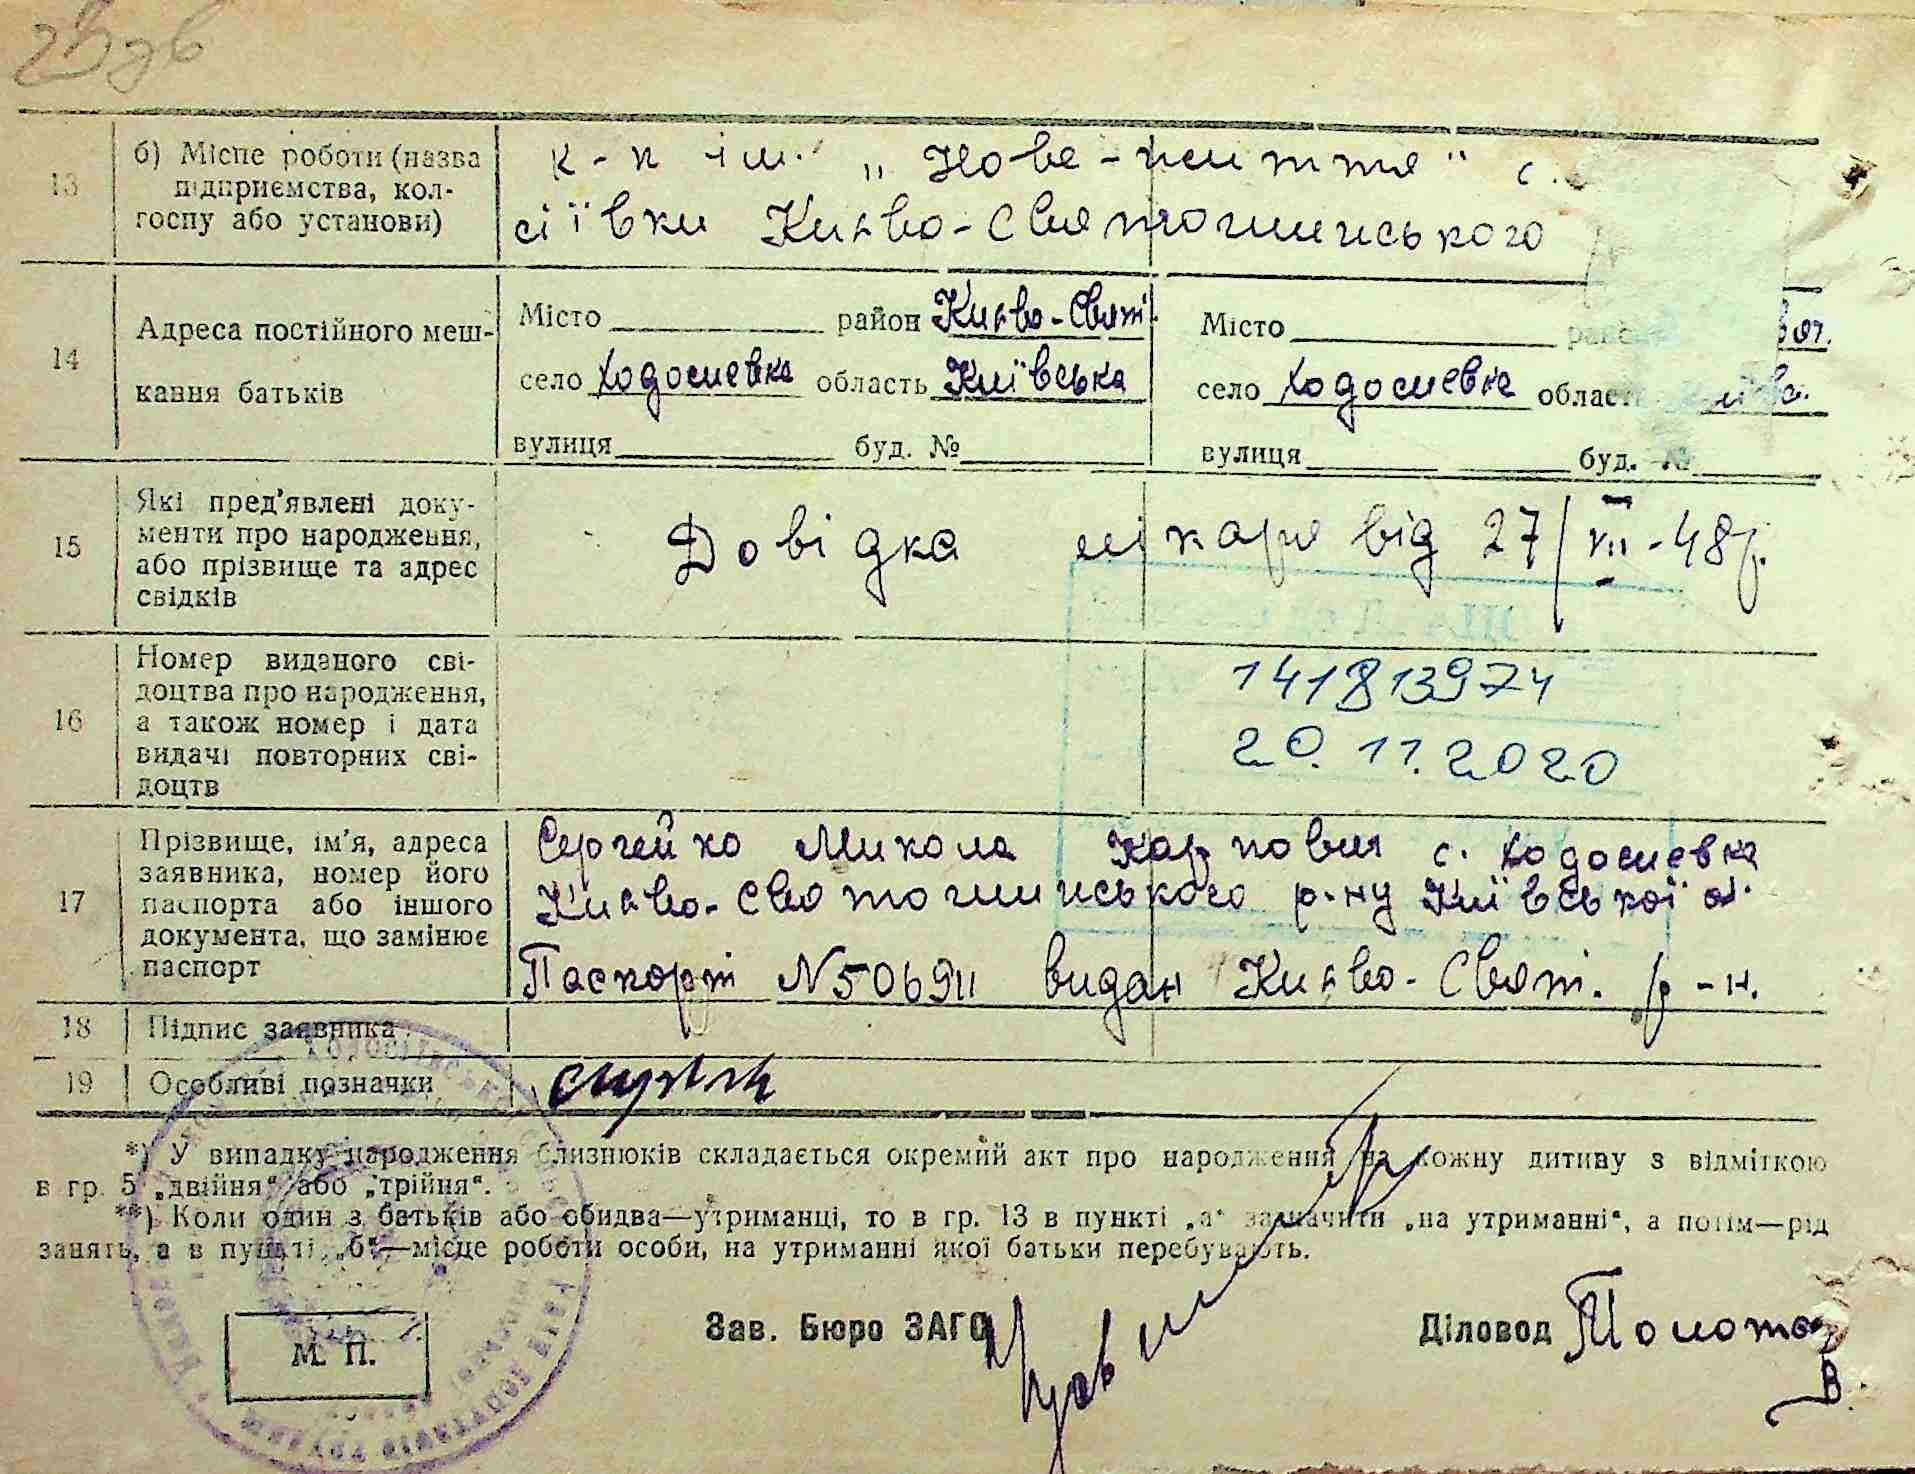 13
б) Місце роботи (назва
підприємства, кол-
госпу або установи)
к-п ім. „Нове-життя" с.
сіївки Києво-Святошинського
14
Адреса постійного меш-
кання батьків
Місто район Києво-Святі
село Ходосиевка область Київська
вулиця буд. №
Місто
село Ходосиевка област
вулиця буд. №
15
Які пред'явлені доку-
менти про народження,
або прізвище та адрес
свідків
Довідка лікаря від 27/VII-48р.
16
Номер виданого сві-
доцтва про народження,
а також номер і дата
видачі повторних сві-
доцтв
141813974
20.11.2020
17
Прізвище, ім'я, адреса
заявника, номер його
паспорта або іншого
документа, що замінює
паспорт
Сергейко Микола Карпович с. Ходосиевка
Києво-Святошинського р-ну Київської о.
Паспорт N506911 видан Києво-Святі. р-н.
18 Підпис заявника
19 Особливі позначки
*) У випадку народження близнюків складається окремий акт про народження на кожну дитину з відміткою
в гр. 5 „двійня" або „трійня".
**) Коли один з батьків або обидва—утриманці, то в гр. 13 в пункті „а" зазначити „на утриманні", а потім—рід
занять, а в пункті „б"—місце роботи особи, на утриманні якої батьки перебувають.
Зав. Бюро ЗАГС
Діловод
М. П.